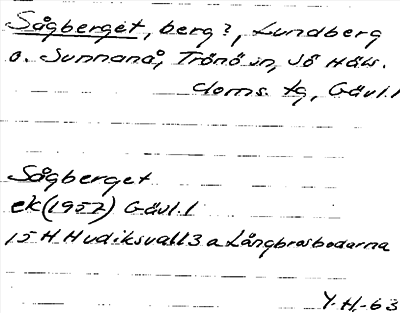 Sågberget, berg?, Lundberg
o. Sunnanå, Trönö sn, Sö Häls.
doms. tg, Gävl.l
Sågberget
ek(1957) Gävl.l
15 H Hudiksvall 3 a Långbrosbodarna
Y.H.-63